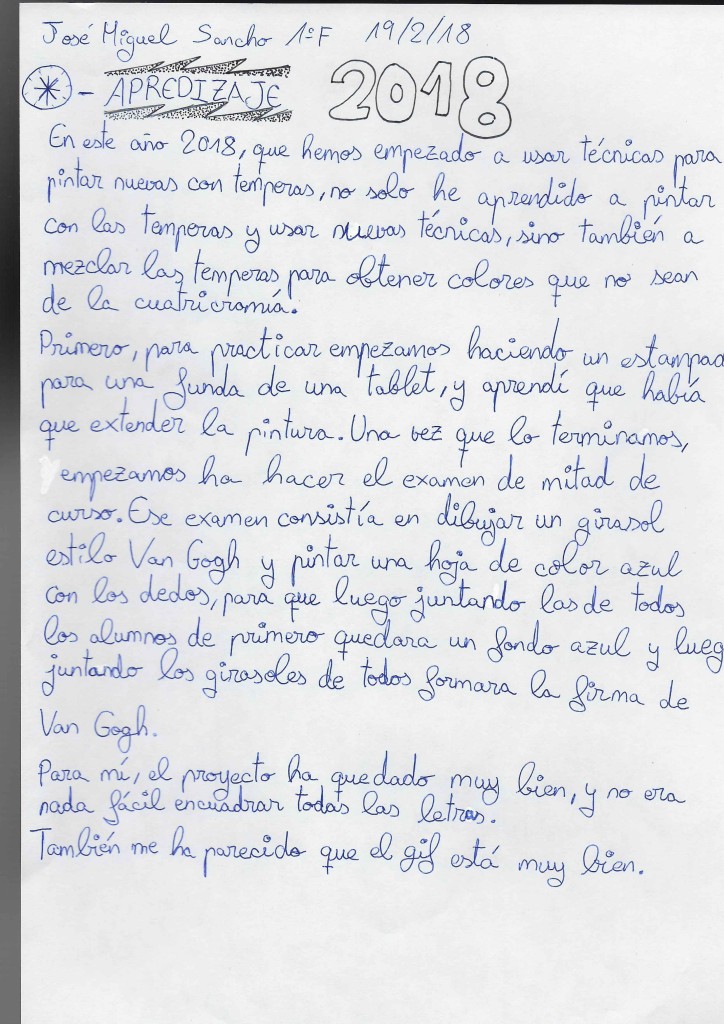 José Miguel Sancho 1ºF 19/2/18
- APREDIZAJE 2018
En este año 2018, que hemos empezado a usar técnicas para
pintar nuevas con temperas, no solo he aprendido a pintar
con las temperas y usar nuevas técnicas, sino también a
mezclar las temperas para obtener colores que no sean
de la cuatricromía.
Primero, para practicar empezamos haciendo un estampad
para una funda de una tablet, y aprendí que había
que extender la pintura. Una vez que lo terminamos,
empezamos ha hacer el examen de mitad de
curso. Ese examen consistía en dibujar un girasol
estilo Van Gogh y pintar una hoja de color azul
con los dedos, para que luego juntando las de todos
los alumnos de primero quedara un fondo azul y lueg
juntando los girasoles de todos formara la firma de
Van Gogh.
Para mí, el proyecto ha quedado muy bien, y no era
nada fácil encuadrar todas las letras.
También me ha parecido que el gif está muy bien.